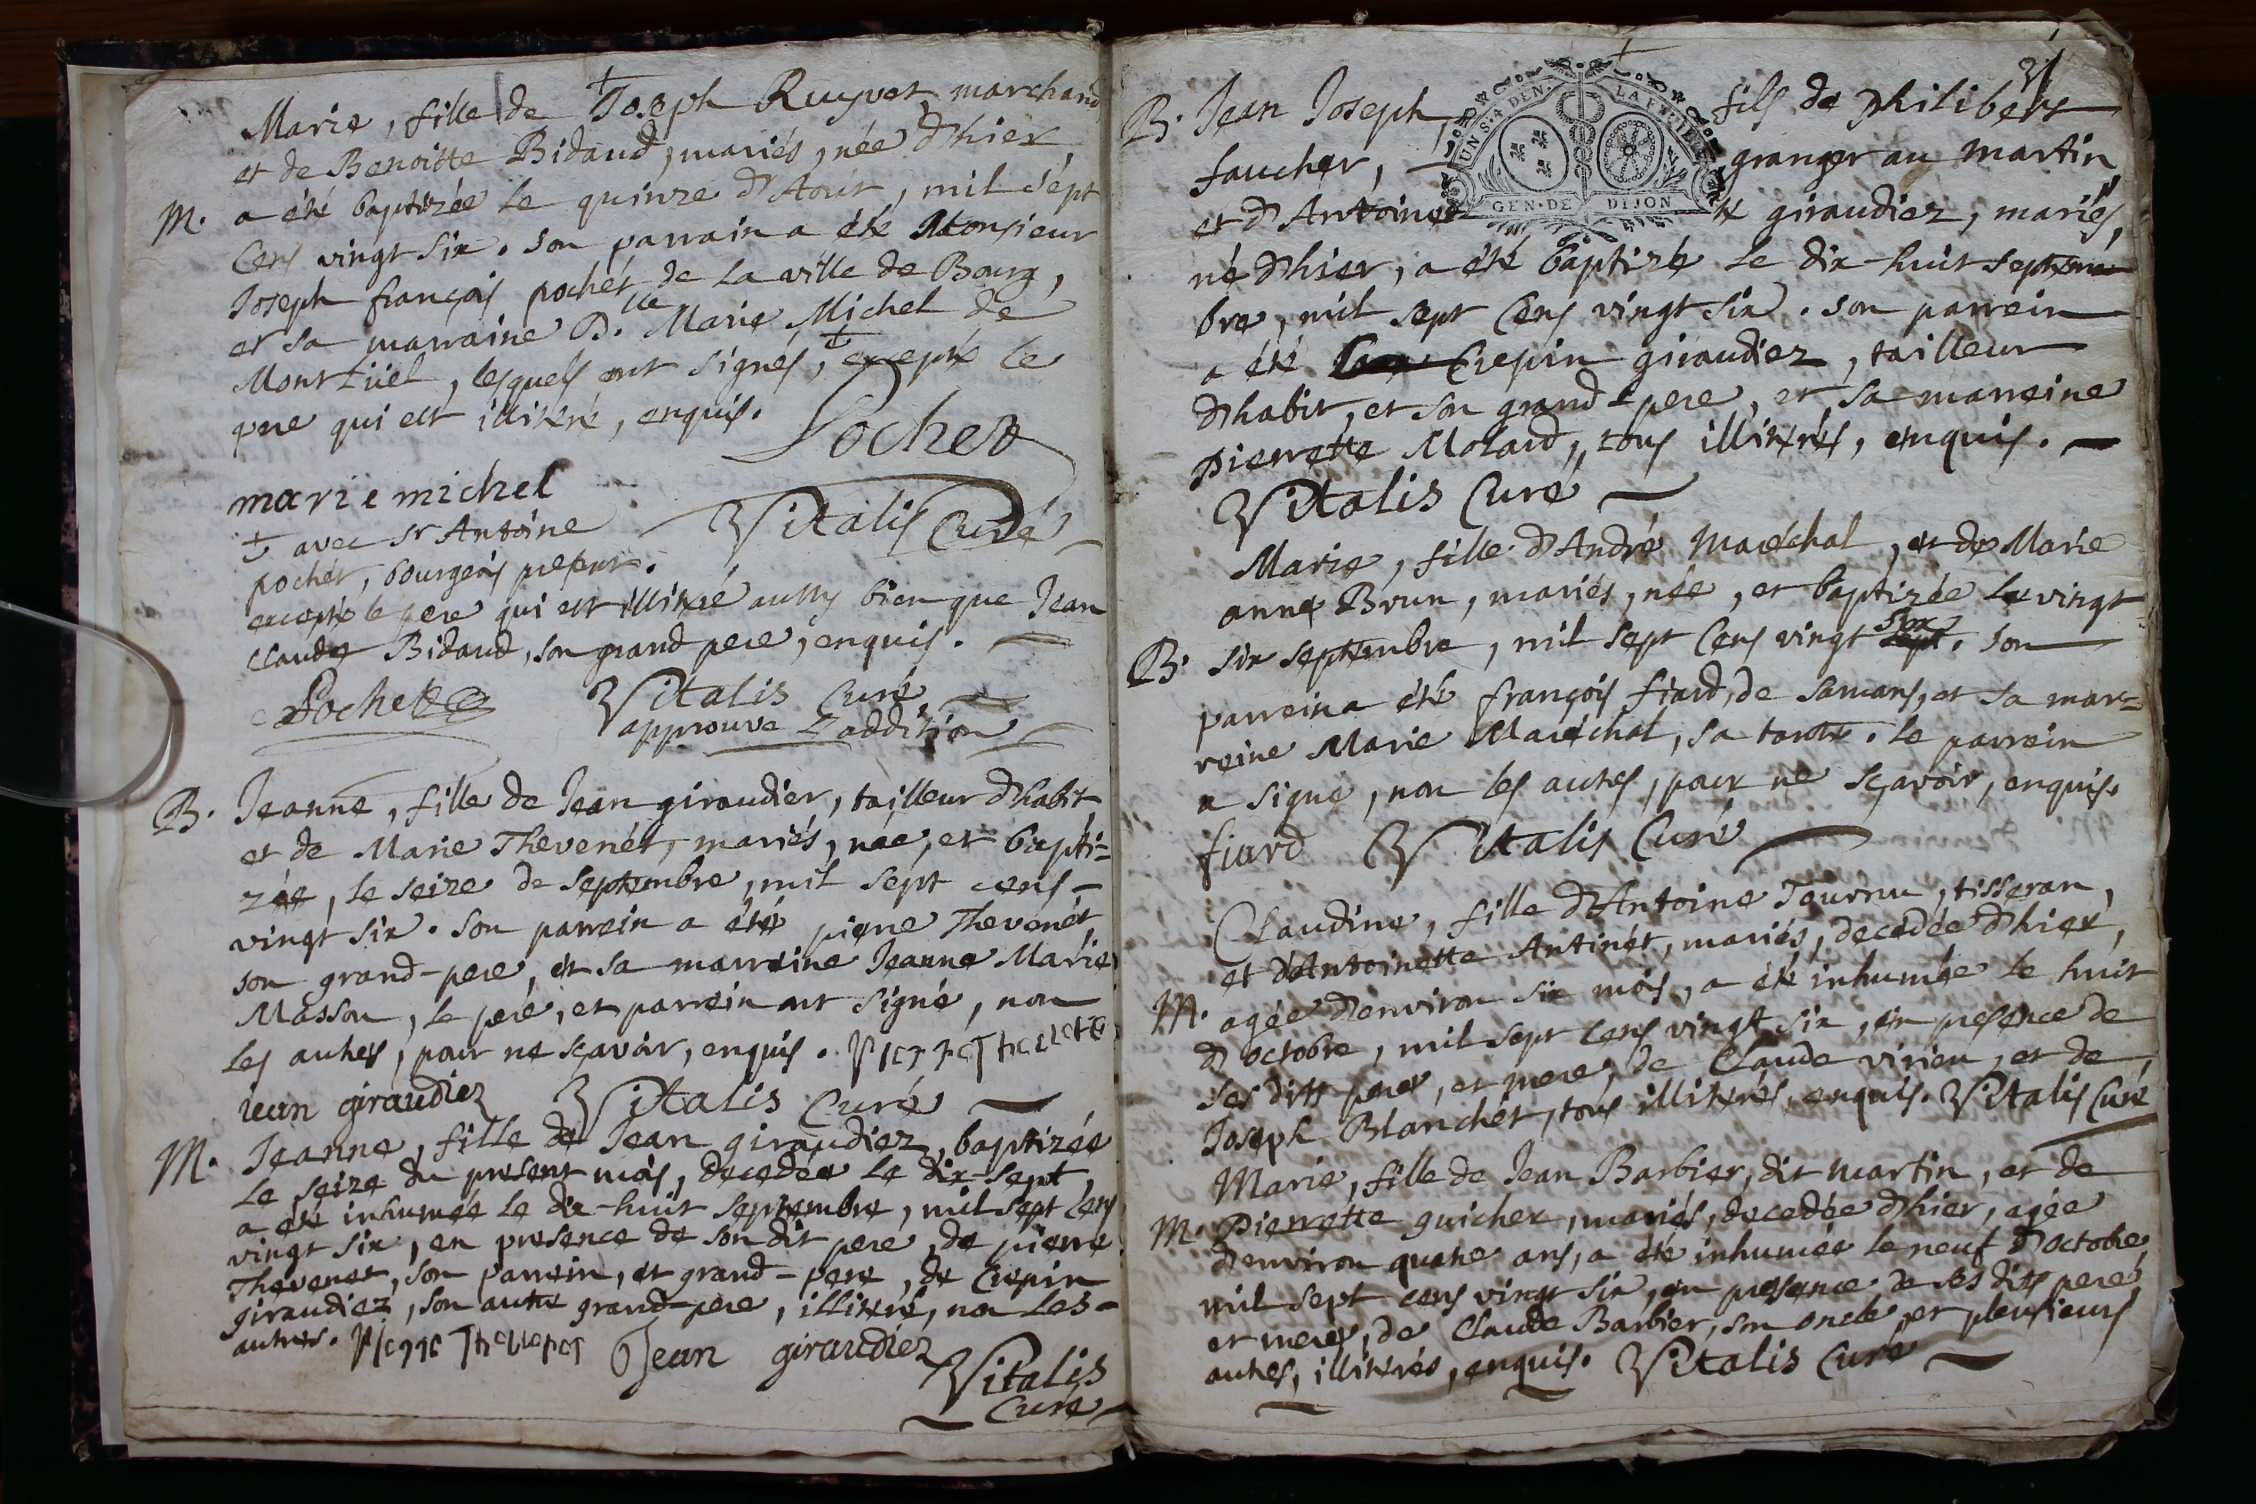 Marie, fille de Joseph Ruyvet, marchand
et de Benoitte Bidaud, mariés, née d'hier
M. a été baptizée le quinze d'Aout, mil sept
cens vingt six. son parrain a été Monsieur
Joseph françois pochet de la ville de Bourg,
et sa marraine D.lle Marie Michel de
Montlüel, lesquels ont signés, ‡ excepté le
pere qui est illitéré, enquis.
Pochet
marie michel
Vitalis Curé
‡ avec sr Antoine
pochet, bourgeois present.
excepté le pere qui est illitéré aussy bien que Jean
claude Bidaud, son grand pere, enquis.
Pochet
Vitalis Curé
approuve L'addition
B. Jeanne, fille de Jean giraudier, tailleur d'habit
et de Marie Thevenét, mariés, née, et bapti=
zée, le seize de septembre, mil sept cens
vingt six. son parrein a été pierre Thevenét
son grand-pere, et sa marreine Jeanne Marie
Masson, le pere, et parrein ont signé, non
les autres, pour ne sçavoir, enquis. Pierre Thevenet
iean giraudiez Vitalis Curé
M. Jeanne, fille de Jean giraudiez, baptizée
le seize du present mois, decedée le dix-sept,
a été inhumée le dix-huit septembre, mil sept cens
vingt six, en presence de son dit pere, de pierre
Thevenet, son parrein, et grand-pere, de Crepin
giraudiez, son autre grand-pere, illitéré, non les
autres. Pierre Thevenet Jean giraudiez
Vitalis
Curé
UN S. A DEN. LA FEUILLE
GEN. DE DIJON
B. Jean Joseph, fils de Philibert
faucher, granger au martin
et d'Antoinette giraudiez, mariés,
né d'hier, a été baptizé le dix-huit septem
bre, mil sept cens vingt six. son parrein
a été Crepin giraudiez, tailleur
d'habit, et son grand-pere, et sa marreine
Pierrette Molard, tous illitérés, enquis.
Vitalis Curé
Marie, fille d'André Maréchal, et de Marie
anne Brun, mariés, née, et baptizée le vingt
B. six septembre, mil sept cens vingt six. son
parrein a été françois fiard, de samans, et sa mar=
reine Marie Maréchal, sa tante. le parrein
a signé, non les autres, pour ne sçavoir, enquis.
fiard Vitalis Curé
Claudine, fille d'Antoine Tournu, tisseran,
et d'Antoinette Antinét, mariés, decedée d'hier,
M. agée d'environ six mois, a été inhumée le huit
d'octobre, mil sept cens vingt six, en presence de
ses dits pere, et mere, de Claude virieu, et de
Joseph Blanchét, tous illitérés, enquis. Vitalis Curé
Marie, fille de Jean Barbier, dit martin, et de
M. Pierrette guicher, mariés, decedée d'hier, agée
d'environ quatre ans, a été inhumée le neuf d'octobre
mil sept cens vingt six, en presence de ses dits pere
et mere, de Claude Barbier, son oncle, et plusieurs
autres, illitérés, enquis. Vitalis Curé